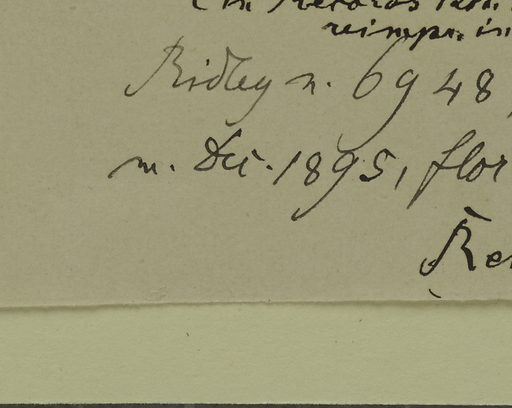 reimpr. in
Ridley n. 6948,
m. Dec. 1895, flor